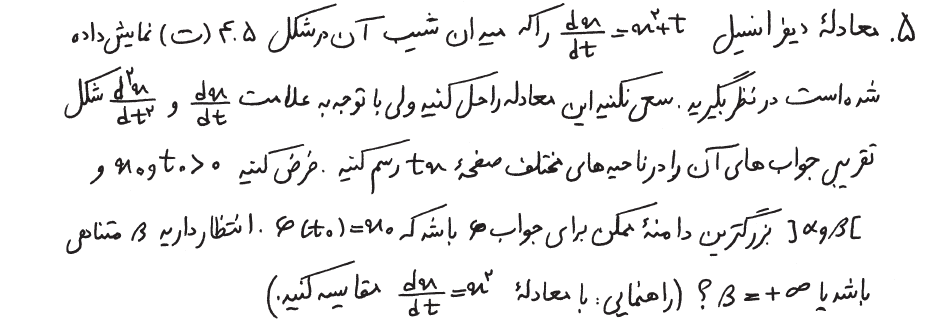 ۵. معادلهٔ دیفرانسیل dx/dt = x²+t را که میدان شیب آن در شکل ۴.۵ (ت) نمایش داده
شده است در نظر بگیرید. سعی نکنید این معادله را حل کنید ولی با توجه به علامت dx/dt و d²x/dt² شکل
تقریبی جواب‌های آن را در ناحیه‌های مختلف صفحهٔ tx رسم کنید. فرض کنید x₀ و t₀ > 0 و
]α و β[ بزرگترین دامنهٔ ممکن برای جواب φ باشد که φ(t₀) = x₀. انتظار دارید β متناهی
باشد یا β = +∞ ؟ (راهنمایی: با معادلهٔ dx/dt = x² مقایسه کنید.)